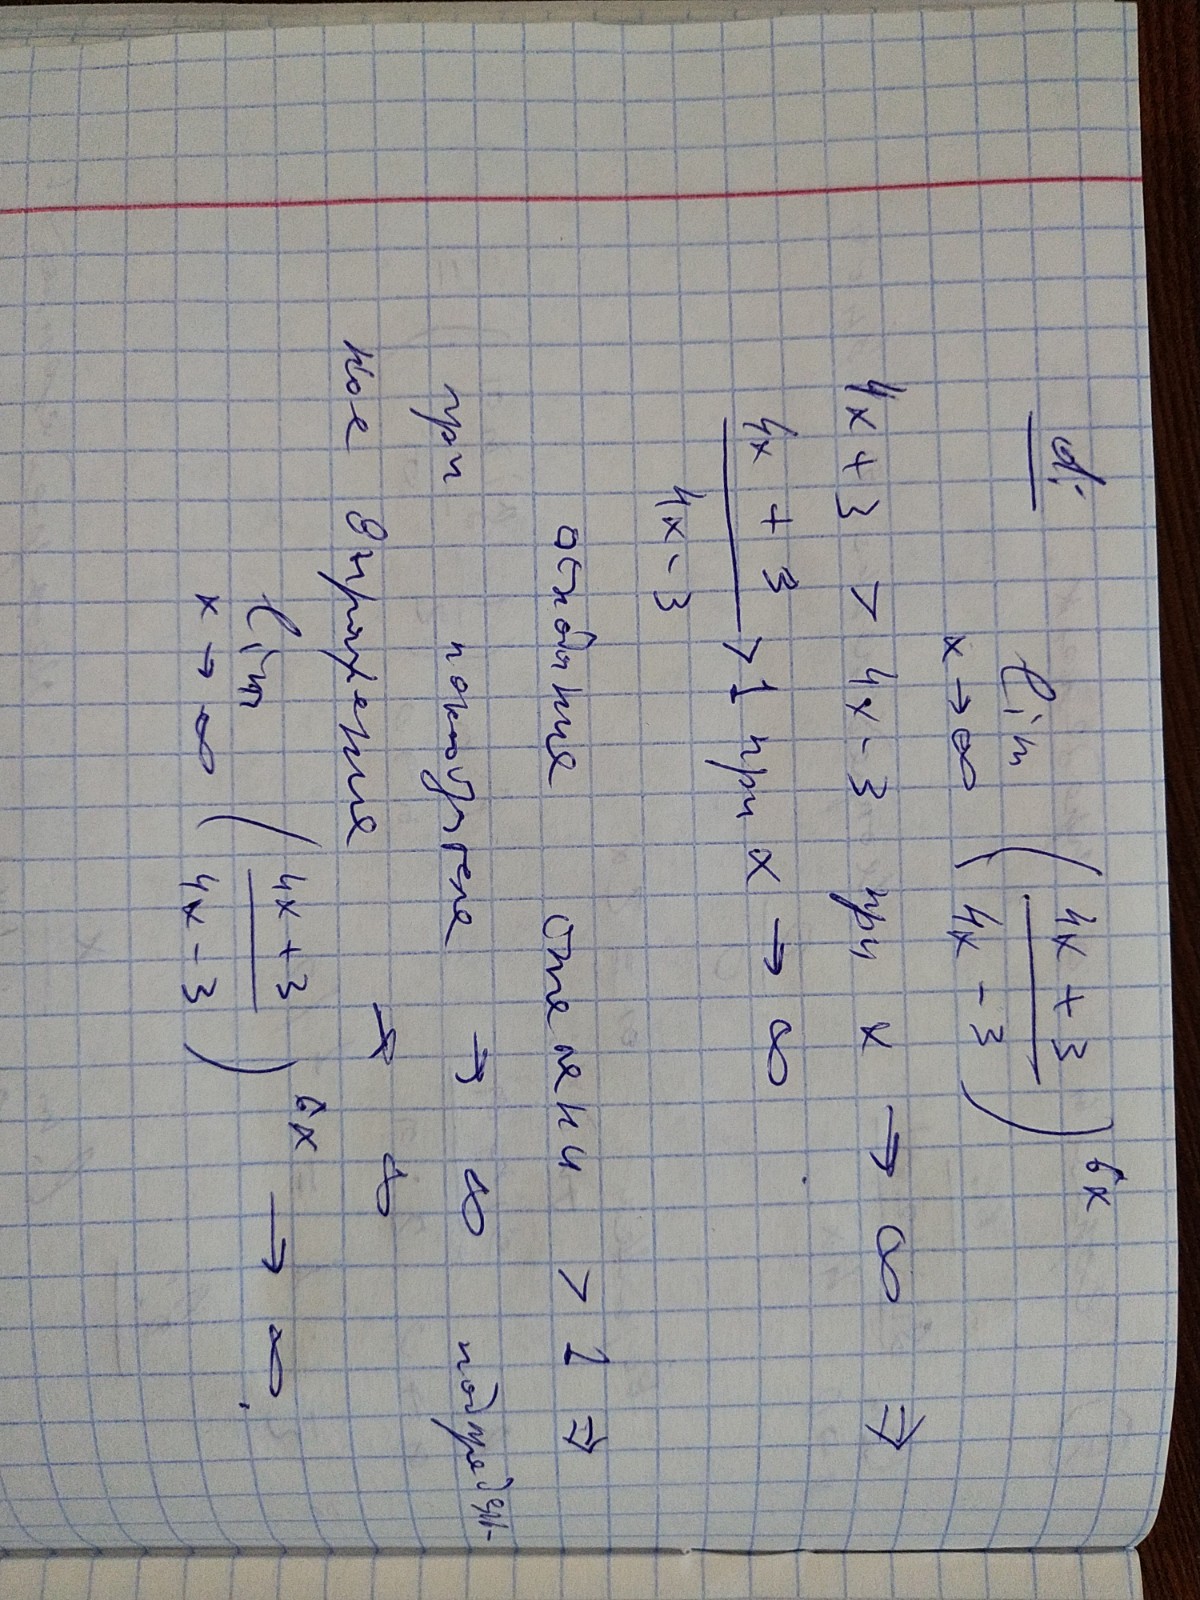 d:
lim x → ∞ ( (4x + 3) / (4x - 3) )^6x
4x + 3 > 4x - 3 при x → ∞ ⇒
(4x + 3) / (4x - 3) > 1 при x → ∞
основание степени > 1 ⇒
при показателе → ∞ подпредель-
ное выражение → ∞
lim x → ∞ ( (4x + 3) / (4x - 3) )^6x → ∞.